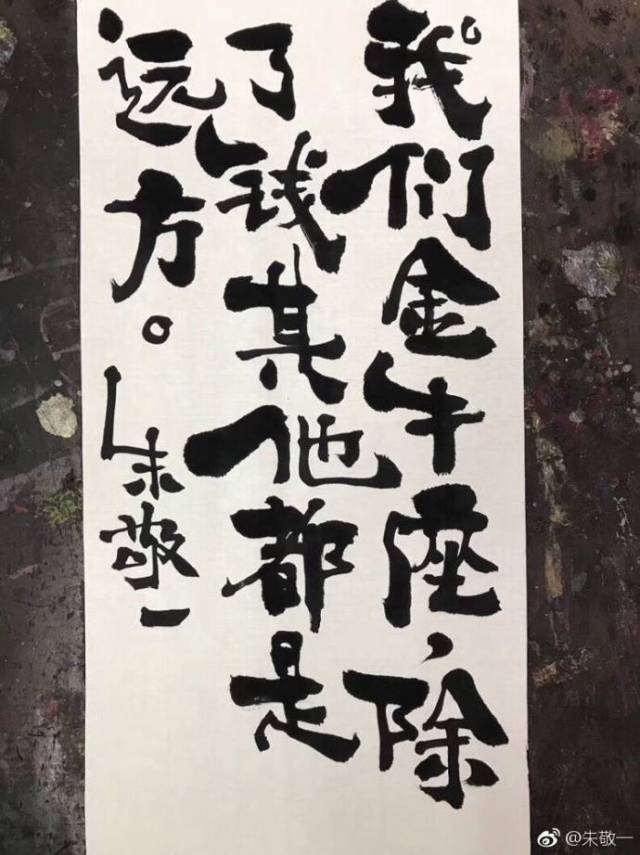 我们金牛座，除
了钱其他都是
远方。
朱敬一
@朱敬一